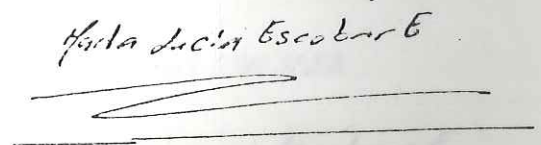 Maria Lucia Escobar E